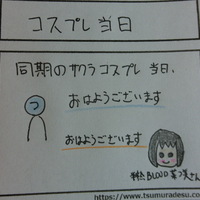 コスプレ当日
同期のサクラコスプレ当日、
おはようございます
つ
おはようございます
BLOOD
さん
https://www.tsumuradesu.c